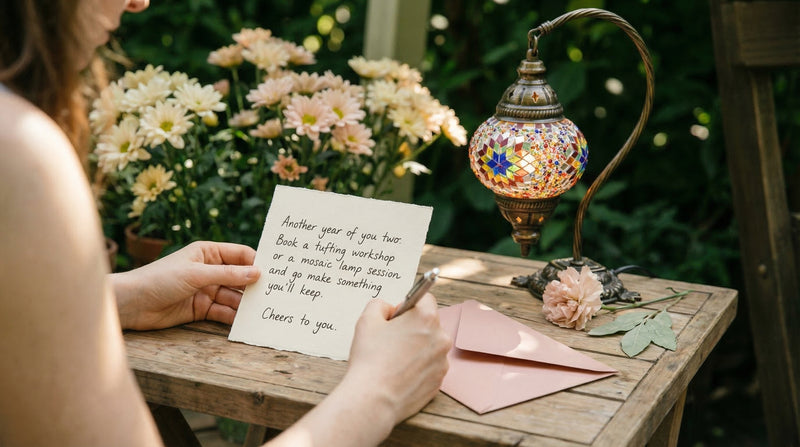 Another year of you two.
Book a tufting workshop
or a mosaic lamp session
and go make something
you'll keep.
Cheers to you.